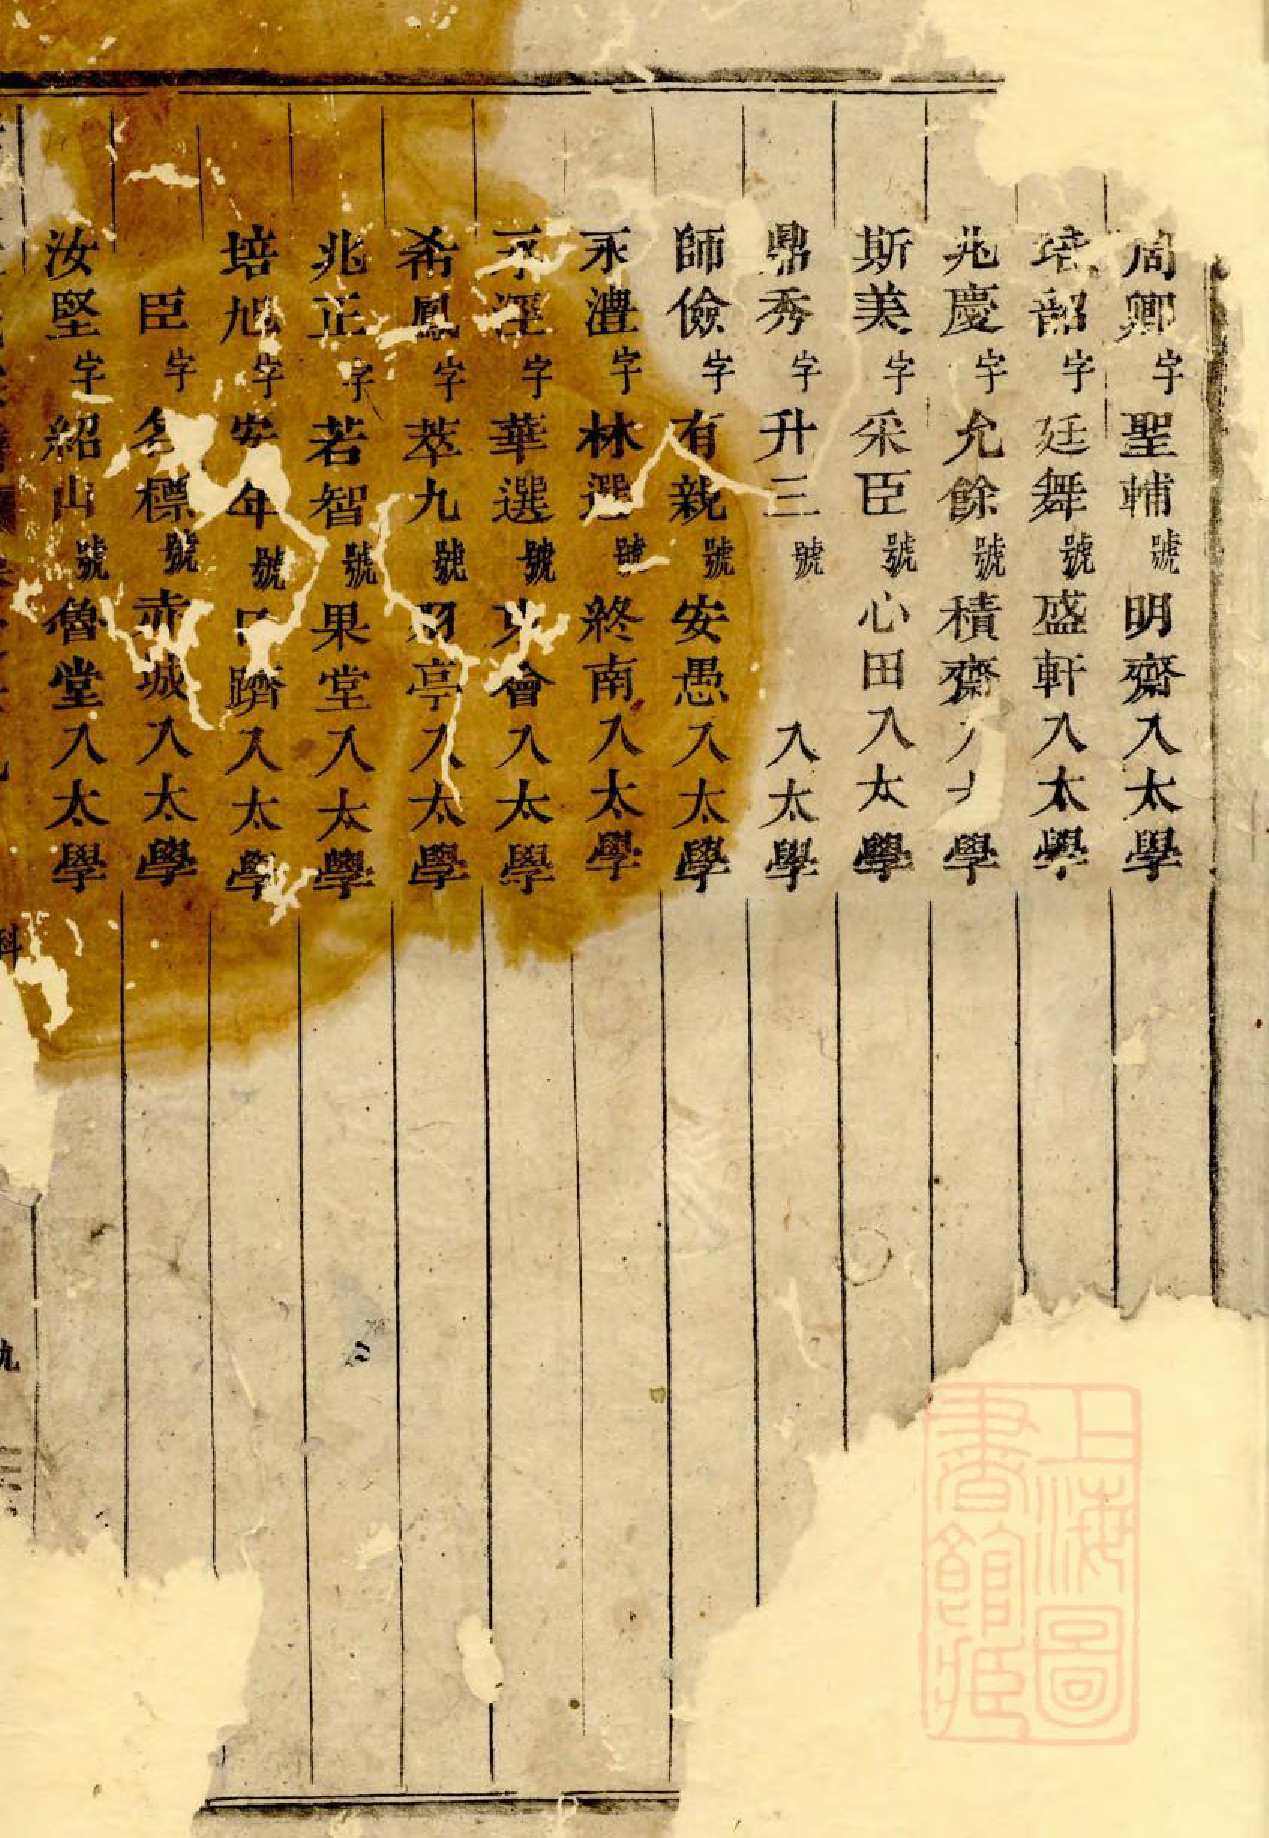 周卿字聖輔號明齋入太學
培韶字廷舞號盛軒入太學
兆慶字允餘號積齋入太學
斯美字采臣號心田入太學
鼎秀字升三號 入太學
師儉字有親號安愚入太學
永灃字林選號終南入太學
永涇字華選號 會入太學
希鳳字萃九號 亭入太學
兆正字若智號果堂入太學
培旭字安年號 躋入太學
臣字名標號赤城入太學
汝堅字紹山號魯堂入太學
科
九
上海圖書館藏